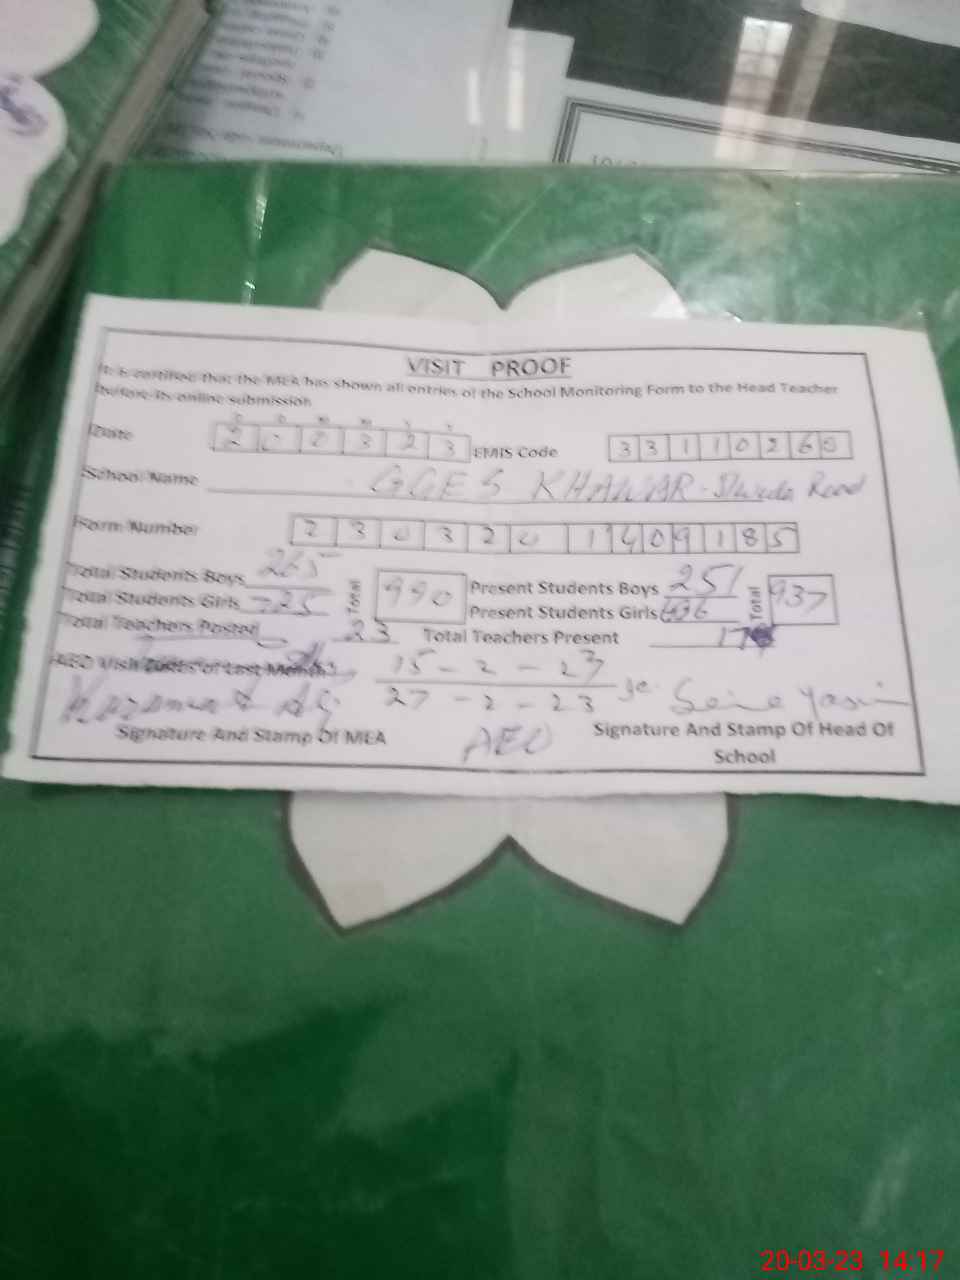 VISIT PROOF
It is certified that the MEA has shown all entries of the School Monitoring Form to the Head Teacher
before its online submission
Date 2 0 0 3 2 3 EMIS Code 3 3 1 1 0 2 6
School Name GGES KHAWAR Road
Form Number 2 3 0 3 2 0 1 4 0 9 1 8 5
Total Students Boys 265 Total 990 Present Students Boys 251 Total 937
Total Students Girls 725 Present Students Girls
Total Teachers Posted 23 Total Teachers Present 17
AEO Visit Dates of Last Month 15-2-23
27-2-23
Signature And Stamp Of MEA AEO Signature And Stamp Of Head Of
School
20-03-23 14:17